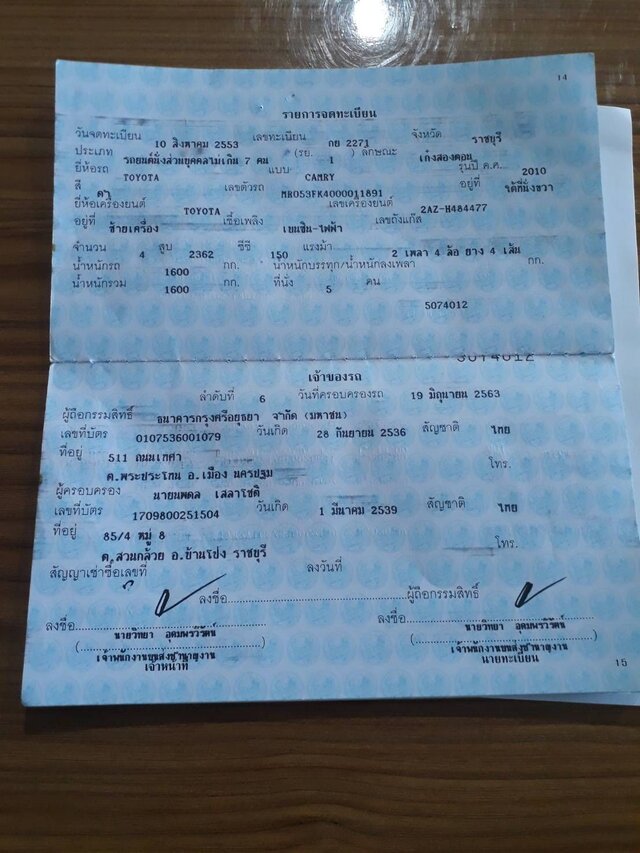 14
รายการจดทะเบียน
วันจดทะเบียน 10 สิงหาคม 2553 เลขทะเบียน กย 2271 จังหวัด ราชบุรี
ประเภท รถยนต์นั่งส่วนบุคคลไม่เกิน 7 คน (รย. 1 ) ลักษณะ เก๋งสองตอน
ยี่ห้อรถ TOYOTA แบบ CAMRY รุ่นปี ค.ศ. 2010
สี ดำ เลขตัวรถ MR053FK4000011891 อยู่ที่ ใต้ที่นั่งขวา
ยี่ห้อเครื่องยนต์ TOYOTA เลขเครื่องยนต์ 2AZ-H484477
อยู่ที่ ซ้ายเครื่อง เชื้อเพลิง เบนซิน-ไฟฟ้า เลขถังแก๊ส
จำนวน 4 สูบ 2362 ซีซี 150 แรงม้า 2 เพลา 4 ล้อ ยาง 4 เส้น
น้ำหนักรถ 1600 กก. น้ำหนักบรรทุก/น้ำหนักลงเพลา กก.
น้ำหนักรวม 1600 กก. ที่นั่ง 5 คน
5074012
5074012
เจ้าของรถ
ลำดับที่ 6 วันที่ครอบครองรถ 19 มิถุนายน 2563
ผู้ถือกรรมสิทธิ์ ธนาคารกรุงศรีอยุธยา จำกัด (มหาชน)
เลขที่บัตร 0107536001079 วันเกิด 28 กันยายน 2536 สัญชาติ ไทย
ที่อยู่ 511 ถนนเทศา โทร.
ต.พระประโทน อ.เมือง นครปฐม
ผู้ครอบครอง นายนพดล เสลาโชติ
เลขที่บัตร 1709800251504 วันเกิด 1 มีนาคม 2539 สัญชาติ ไทย
ที่อยู่ 85/4 หมู่ 8 โทร.
ต.สวนกล้วย อ.บ้านโป่ง ราชบุรี
สัญญาเช่าซื้อเลขที่ ลงวันที่
ลงชื่อ ผู้ถือกรรมสิทธิ์
ลงชื่อ ลงชื่อ
นายวิทยา อุดมพรวิรัตน์ นายวิทยา อุดมพรวิรัตน์
เจ้าพนักงานขนส่งชำนาญงาน เจ้าพนักงานขนส่งชำนาญงาน
เจ้าหน้าที่ นายทะเบียน
15